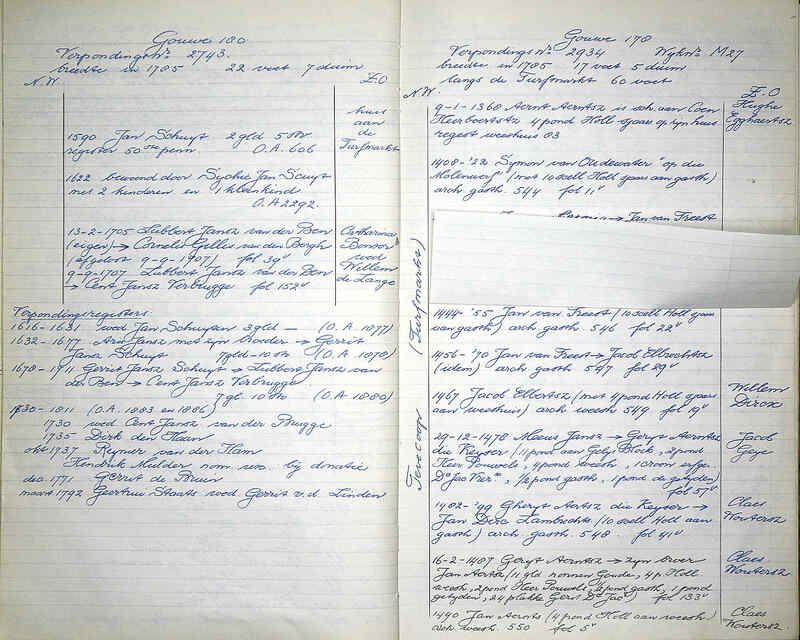 Gouwe 180
Verpondings No. 2743.
breedte in 1785 22 voet 7 duim
N.W. Z.O
huis
aan
de
Turfmarkt
1590 Jan Schuyt 2 gld 5 st.
register 50ste penn. O.A. 606
1622 bewoond door Sychie Jan Scuyt
met 2 kinderen en 1 kleinkind
O.A 2292.
13-2-1705 Lubbert Jansz van der Ben
(eigen) → Cornelis Gillis van den Bergh
(afgelost 9-9-1707) fol 39v
9-9-1707 Lubbert Jansz van der Ben
→ Cent Jansz Verbrugge fol 152v
Catharina
wed
Willem
de Lange
Verpondingregisters
1616-1631 wed Jan Schuyten 3 gld — (O.A. 1077)
1632-1677 Arij Jansz met zijn moeder → Gerrit
Jansz Schuyt 7 gld-10 st (O.A 1078)
1678-1711 Gerrit Jansz Schuyt → Lubbert Jansz van
der Ben → Cent Jansz Verbrugge
7 gl. 10 st (O.A 1080)
1730-1811 (O.A. 1883 en 1886)
1730 wed Cent Jansz van der Brugge
1735 Dirk den Haan
okt 1737 Reynier van der Ham
Hendrik Mulder nom. uxo. bij donatie
dec. 1771 Gerrit de Bruin
maart 1792 Geertrui Staats wed. Gerrit v.d. Linden
Gouwe 178
Verpondings No. 2934 Wijk No. M27
breedte in 1785 17 voet 5 duim
langs de Turfmarkt 60 voet
N.W. Z.O
9-1-1360 Aernt Aerntsz is sch. aan Coen
Heerbaertsz 4 pond Holl sjaars op zijn huis
regest weeshuis 83
Hughe
Egghaertsz
1408-'32 Symon van Oudewater "op die
Molenwerf" (met 10 scell Holl sjaars aan gasth)
arch gasth. 544 fol 11v
→ Jan van Freest
Ten Coop (Turfmarkt)
1444-'55 Jan van Freest (10 scell Holl sjaars
aan gasth) arch gasth 546 fol 22v
1456-'70 Jan van Freest → Jacob Elbrechtsz
(idem) arch gasth 547 fol 29v
1467 Jacob Elbertsz (met 4 pond Holl sjaars
aan weeshuis) arch weesh 549 fol 19v
Willem
Dircx
29-12-1478 Meeus Jansz → Geryt Aerntsz
die Keyser (11 pond aan Gelys Block, 2 pond
Heer Pouwels, 4 pond weesh, 10 croon erfgen.
Dr Jac , ½ pond gasth, 1 pond de getyden)
fol 57v
Jacob
Geye
1482-'99 Gheryt Aertsz die Keyser →
Jan Dirc Lambrechts (10 scell Holl aan
gasth) arch gasth. 548. fol 41v
Claes
Woutersz
16-2-1487 Geryt Aerntsz → zijn broer
Jan Aerntsz (11 gld nonnen Gouda, 4 p. Holl
weesh, 2 pond Heer Pouwels, ½ pond gasth, 1 pond
getyden, 24 plakke Gers. Dr Jac) fol 133v
Claes
Woutersz
1490 Jan Aernts (4 pond Holl aan weesh)
arch weesh. 550 fol 5v
Claes
Woutersz.